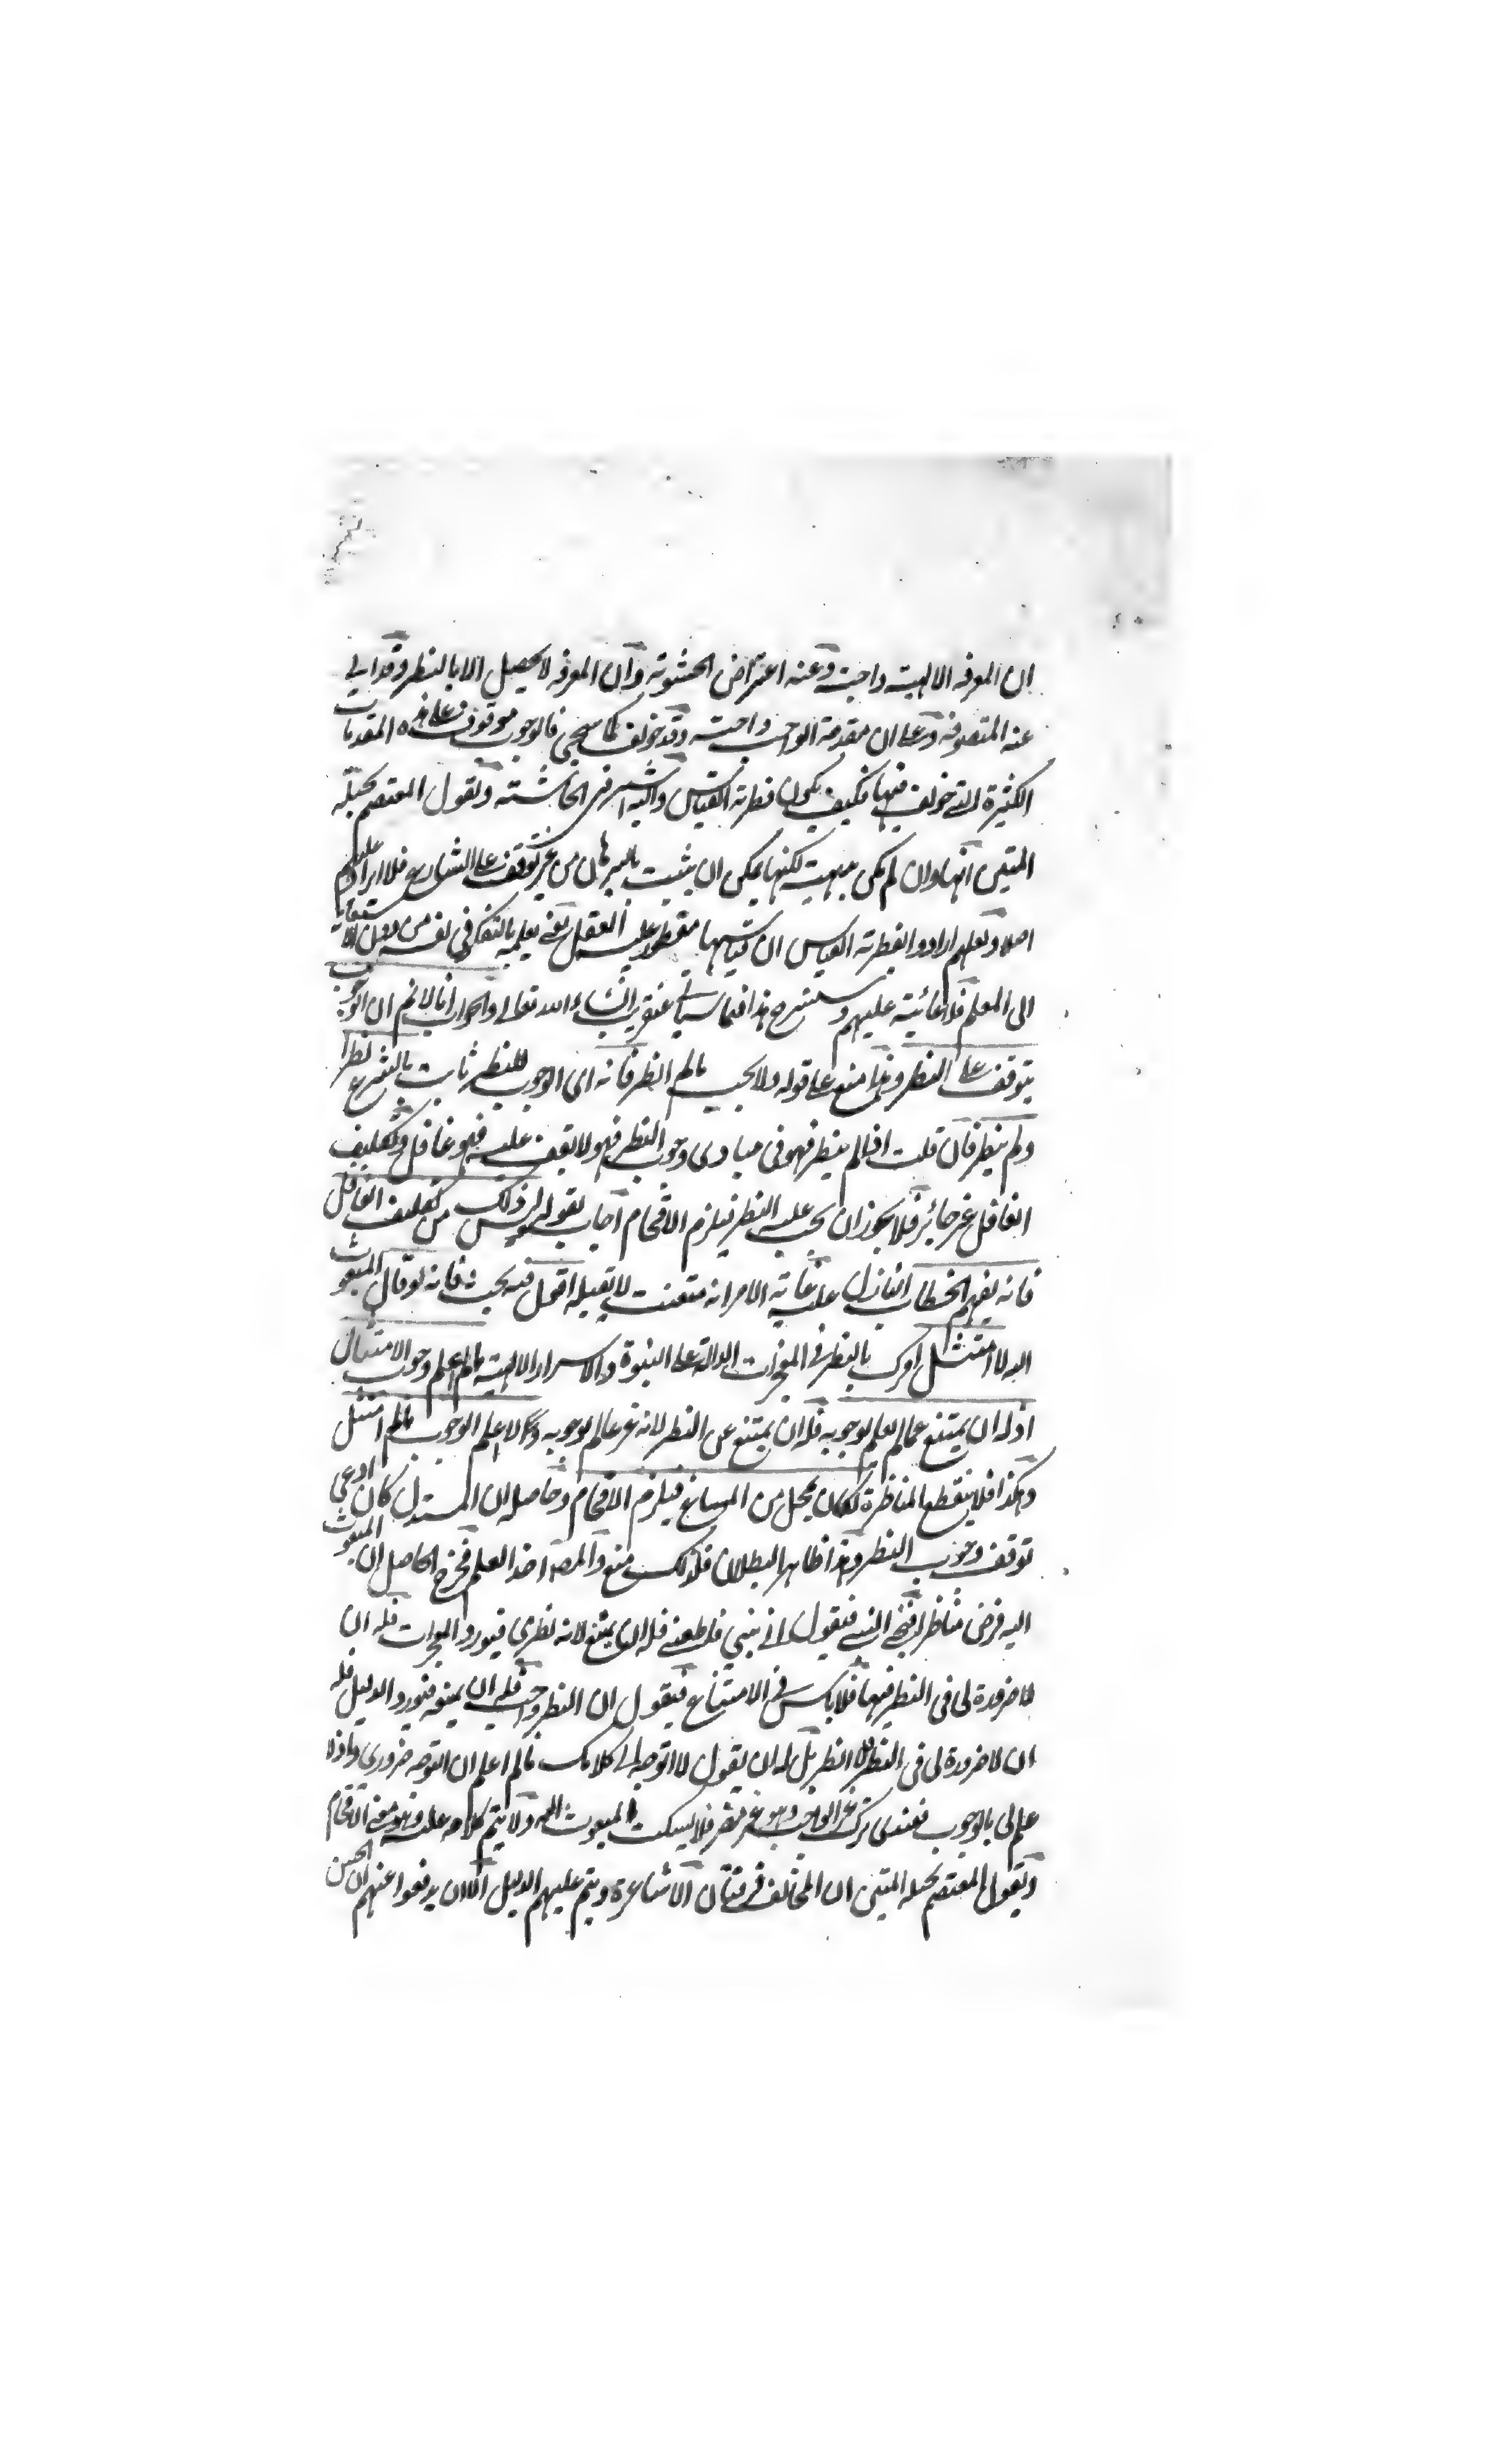 ان المعرفه الالهية واجبة وعنه اعتراض الحشوية وان المعرفه لا يحصل الا بالنظر وقد ابى
عنه المتصوفه وعلى ان مقدمة الواجب واجبة وقد خولف كما سيجئ فالوجوب موقوف على هذه المقدمات
الكثيرة التي خولف فيها فكيف يكون فطرية القياس واليه اشير في الحاشية ويقول المعتصم بحبله
المتين انها وان لم يكن بديهية لكنها يمكن ان يثبت بالبرهان من غير توقف على الشارع فلا ايراد عليهم
اصلا ولعلهم ارادوا بفطرية القياس ان قياسها مفطور عليه العقل يعني يعلمه بالتفكر في نفسه من دون
الى المعلم فلا عائبة عليهم وسنشرح هذا فيما سيأتي عنقريب انشاء الله تعالى والجواب انا لا نم ان الوجوب
يتوقف على النظر وهذا منع على قوله ولا يجب ما لم انظر فانه اى الوجوب للنظر ثابت بالشرع نظر
ولم ينظر فان قلت اذا لم ينظر فهو في مبادى وجوب النظر فهو لا يقف عليه فهو غافل وتكليف
الغافل غير جائز فلا يجوز ان يجب عليه النظر فيلزم الافحام اجاب بقوله وليس ذلك من تكليف الغافل
فانه يفهم الخطاب النازل عليه غاية الامر انه متعنت لا يقبله اقول فيه بحث فانه لو قال المبعوث
اليه لا امتثل امرك بالنظر في المعجزات الدالة على النبوة والاسرار الالهية ما لم اعلم وجوب الامتثال
اذ له ان يمتنع عما لم يعلم وجوبه فله ان يمتنع عن النظر لانه غير عالم بوجوبه ولا اعلم الوجوب ما لم امتثل
وهكذا فلا ينقطع المناظرة لكان بمحل من المساغ فيلزم الافحام وحاصله ان المستدل كان ادعى
توقف وجوب النظر وهذا ظاهر البطلان فلذلك منع والمصـ اخذ العلم فخرج الحاصل ان المبعوث
اليه فرض مناظرا فيجئ النبي فيقول اني نبي فاطعني فله ان يمنع لانه نظري فيورد المعجزات فله ان
لا ضرورة لي في النظر فيها فلا باس في الامتناع فيقول ان النظر واجب فله ان يمنعه فيورد الدليل فله
ان لا ضرورة لي في النظر بل له ان يقول لا اتوجه الى كلامك ما لم اعلم ان التوجه ضروري واذ لا
علم لي بالوجوب فعندي ترك غير الواجب وهو غير مضر فلا يسكت المبعوث اليه ولا يتم كلامه عليه وهو معنى الافحام
ويقول المعتصم بحبله المتين ان المخالف الاشاعرة ويتم عليهم الدليل الا ان يرفعوا عنهم الحسن